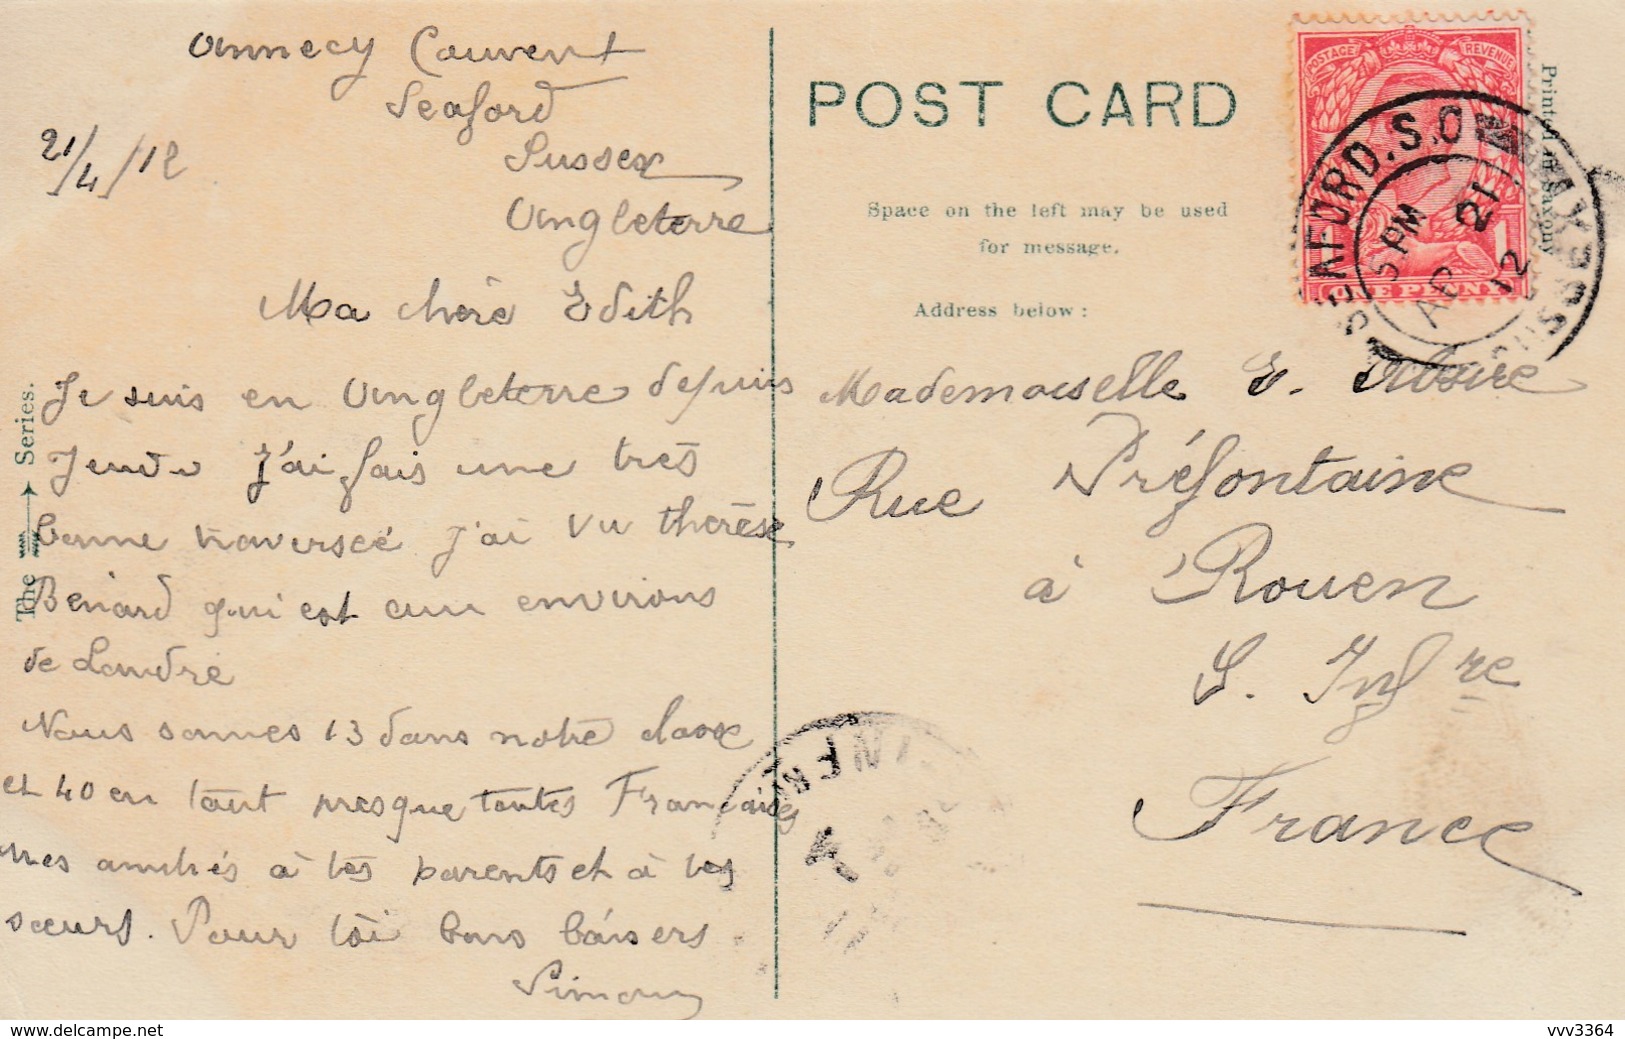 Annecy Couvent
Seaford
Sussex
Angleterre
21/4/12
Ma chère Edith
Je suis en Angleterre depuis
Jeudi J'ai fais une très
bonne traversée J'ai vu thérèse
Bénard qui est aux environs
de Londre
Nous somes 13 dans notre classe
et 40 en tout presque toutes Françaises
mes amitiés à tes parents et à tes
sœurs. Pour toi bons baisers
Simone
The Series.
POST CARD
Space on the left may be used
for message.
Address below:
Printed in Saxony
POSTAGE REVENUE
1 1
ONE PENNY
SEAFORD. S.O
SUSSEX
5 PM
AP 21
12
Mademoiselle E.
Rue Préfontaine
à Rouen
S. Infre
France
INFRE
delcampe.net
vvv3364